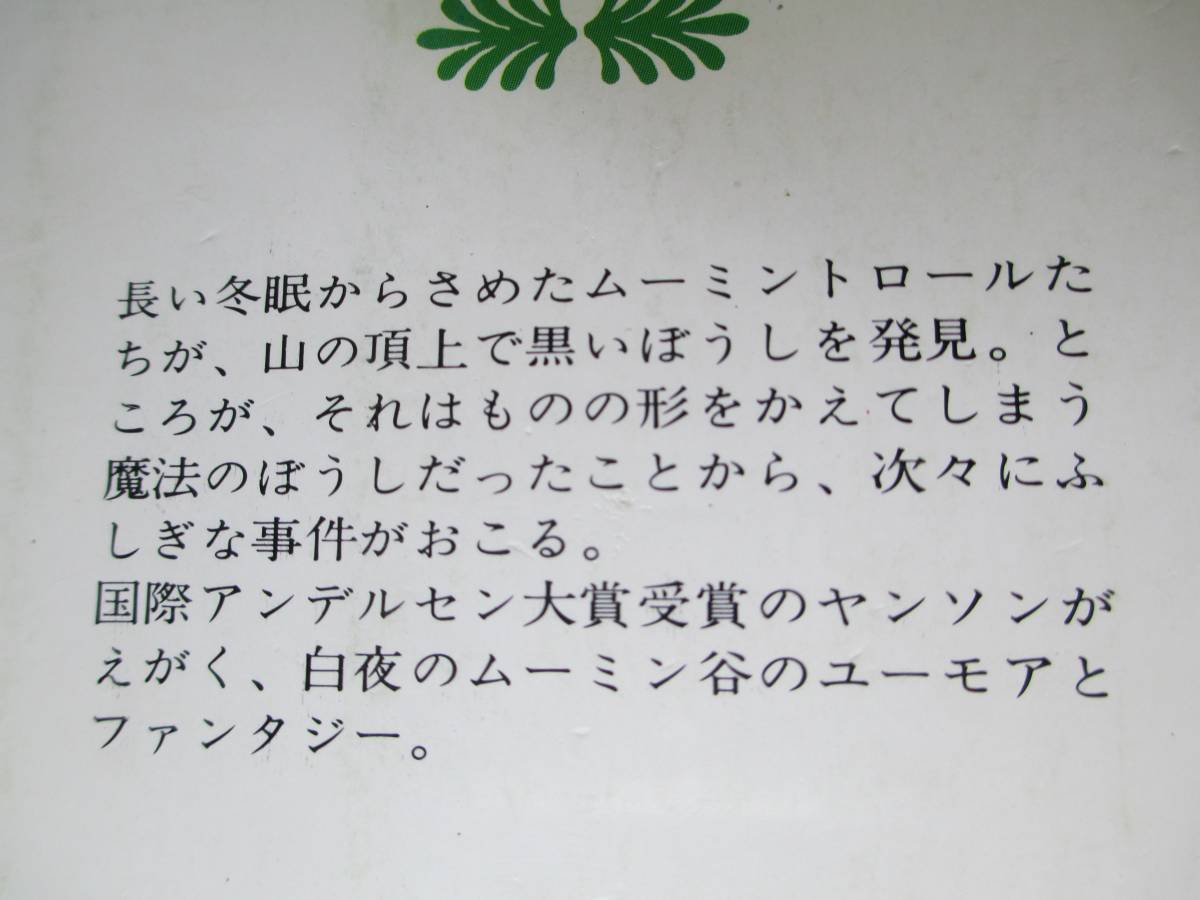 長い冬眠からさめたムーミントロールた
ちが、山の頂上で黒いぼうしを発見。と
ころが、それはものの形をかえてしまう
魔法のぼうしだったことから、次々にふ
しぎな事件がおこる。
国際アンデルセン大賞受賞のヤンソンが
えがく、白夜のムーミン谷のユーモアと
ファンタジー。